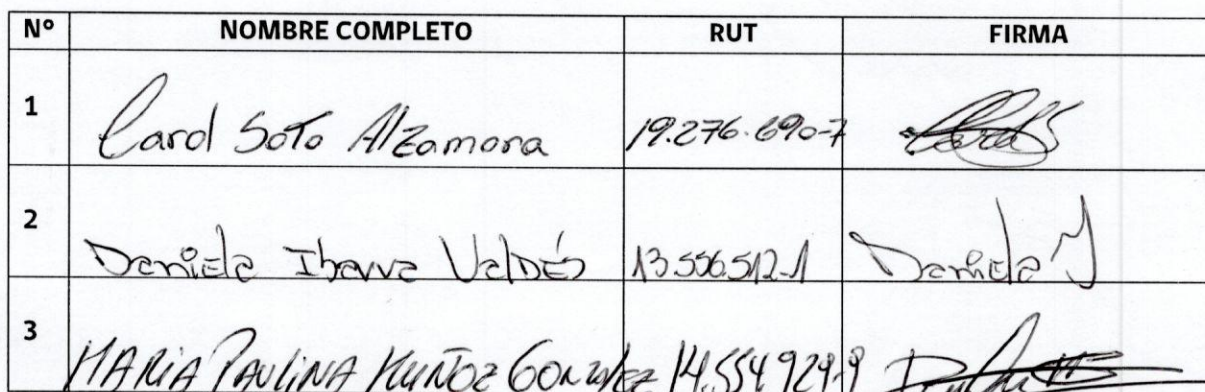 N° NOMBRE COMPLETO RUT FIRMA
1 Carol Soto Alzamora 19.276.690-7
2 Daniela Ibarra Valdés 13.556.512-1 Daniela I
3 MARIA PAULINA MUÑOZ GONZALEZ 14.554.929-9